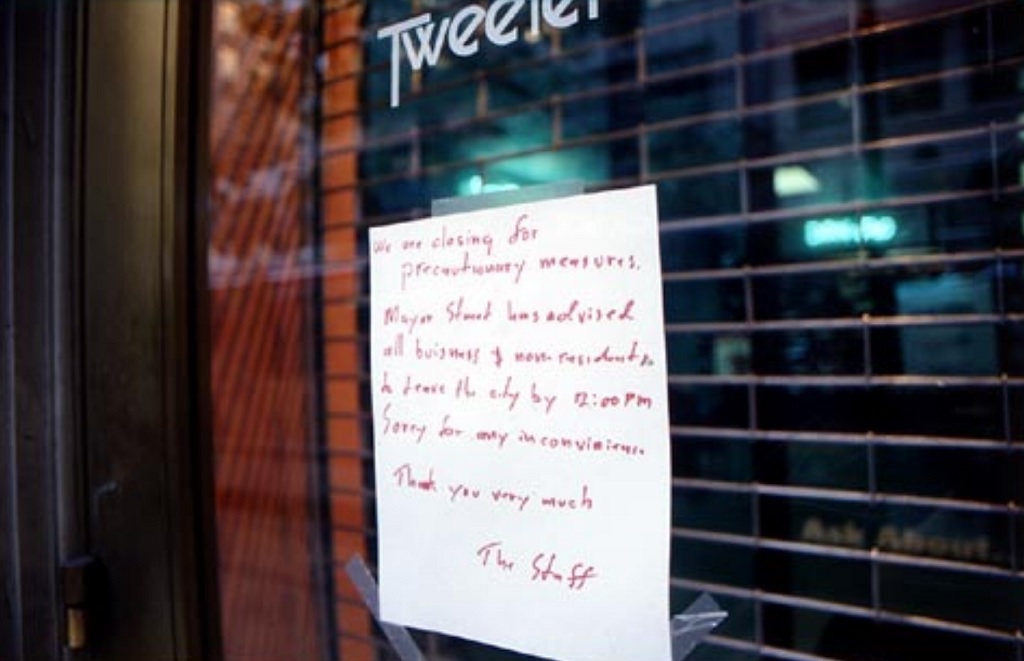 Tweeter
We are closing for
precautionary measures.
Mayor Street has advised
all buisness & non-residents
to leave the city by 12:00 PM
Sorry for any inconvinience
Thank you very much
The Staff
Ask About